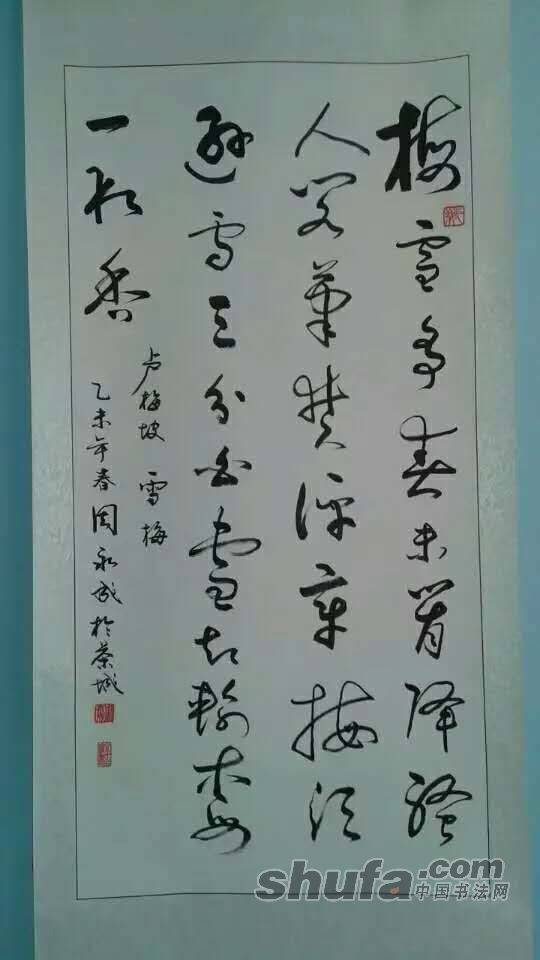 梅雪争春未肯降骚
人阁笔费评章梅须
逊雪三分白雪却输梅
一段香
卢梅坡 雪梅
乙未年春周永成於茶城
shufa.com
中国书法网